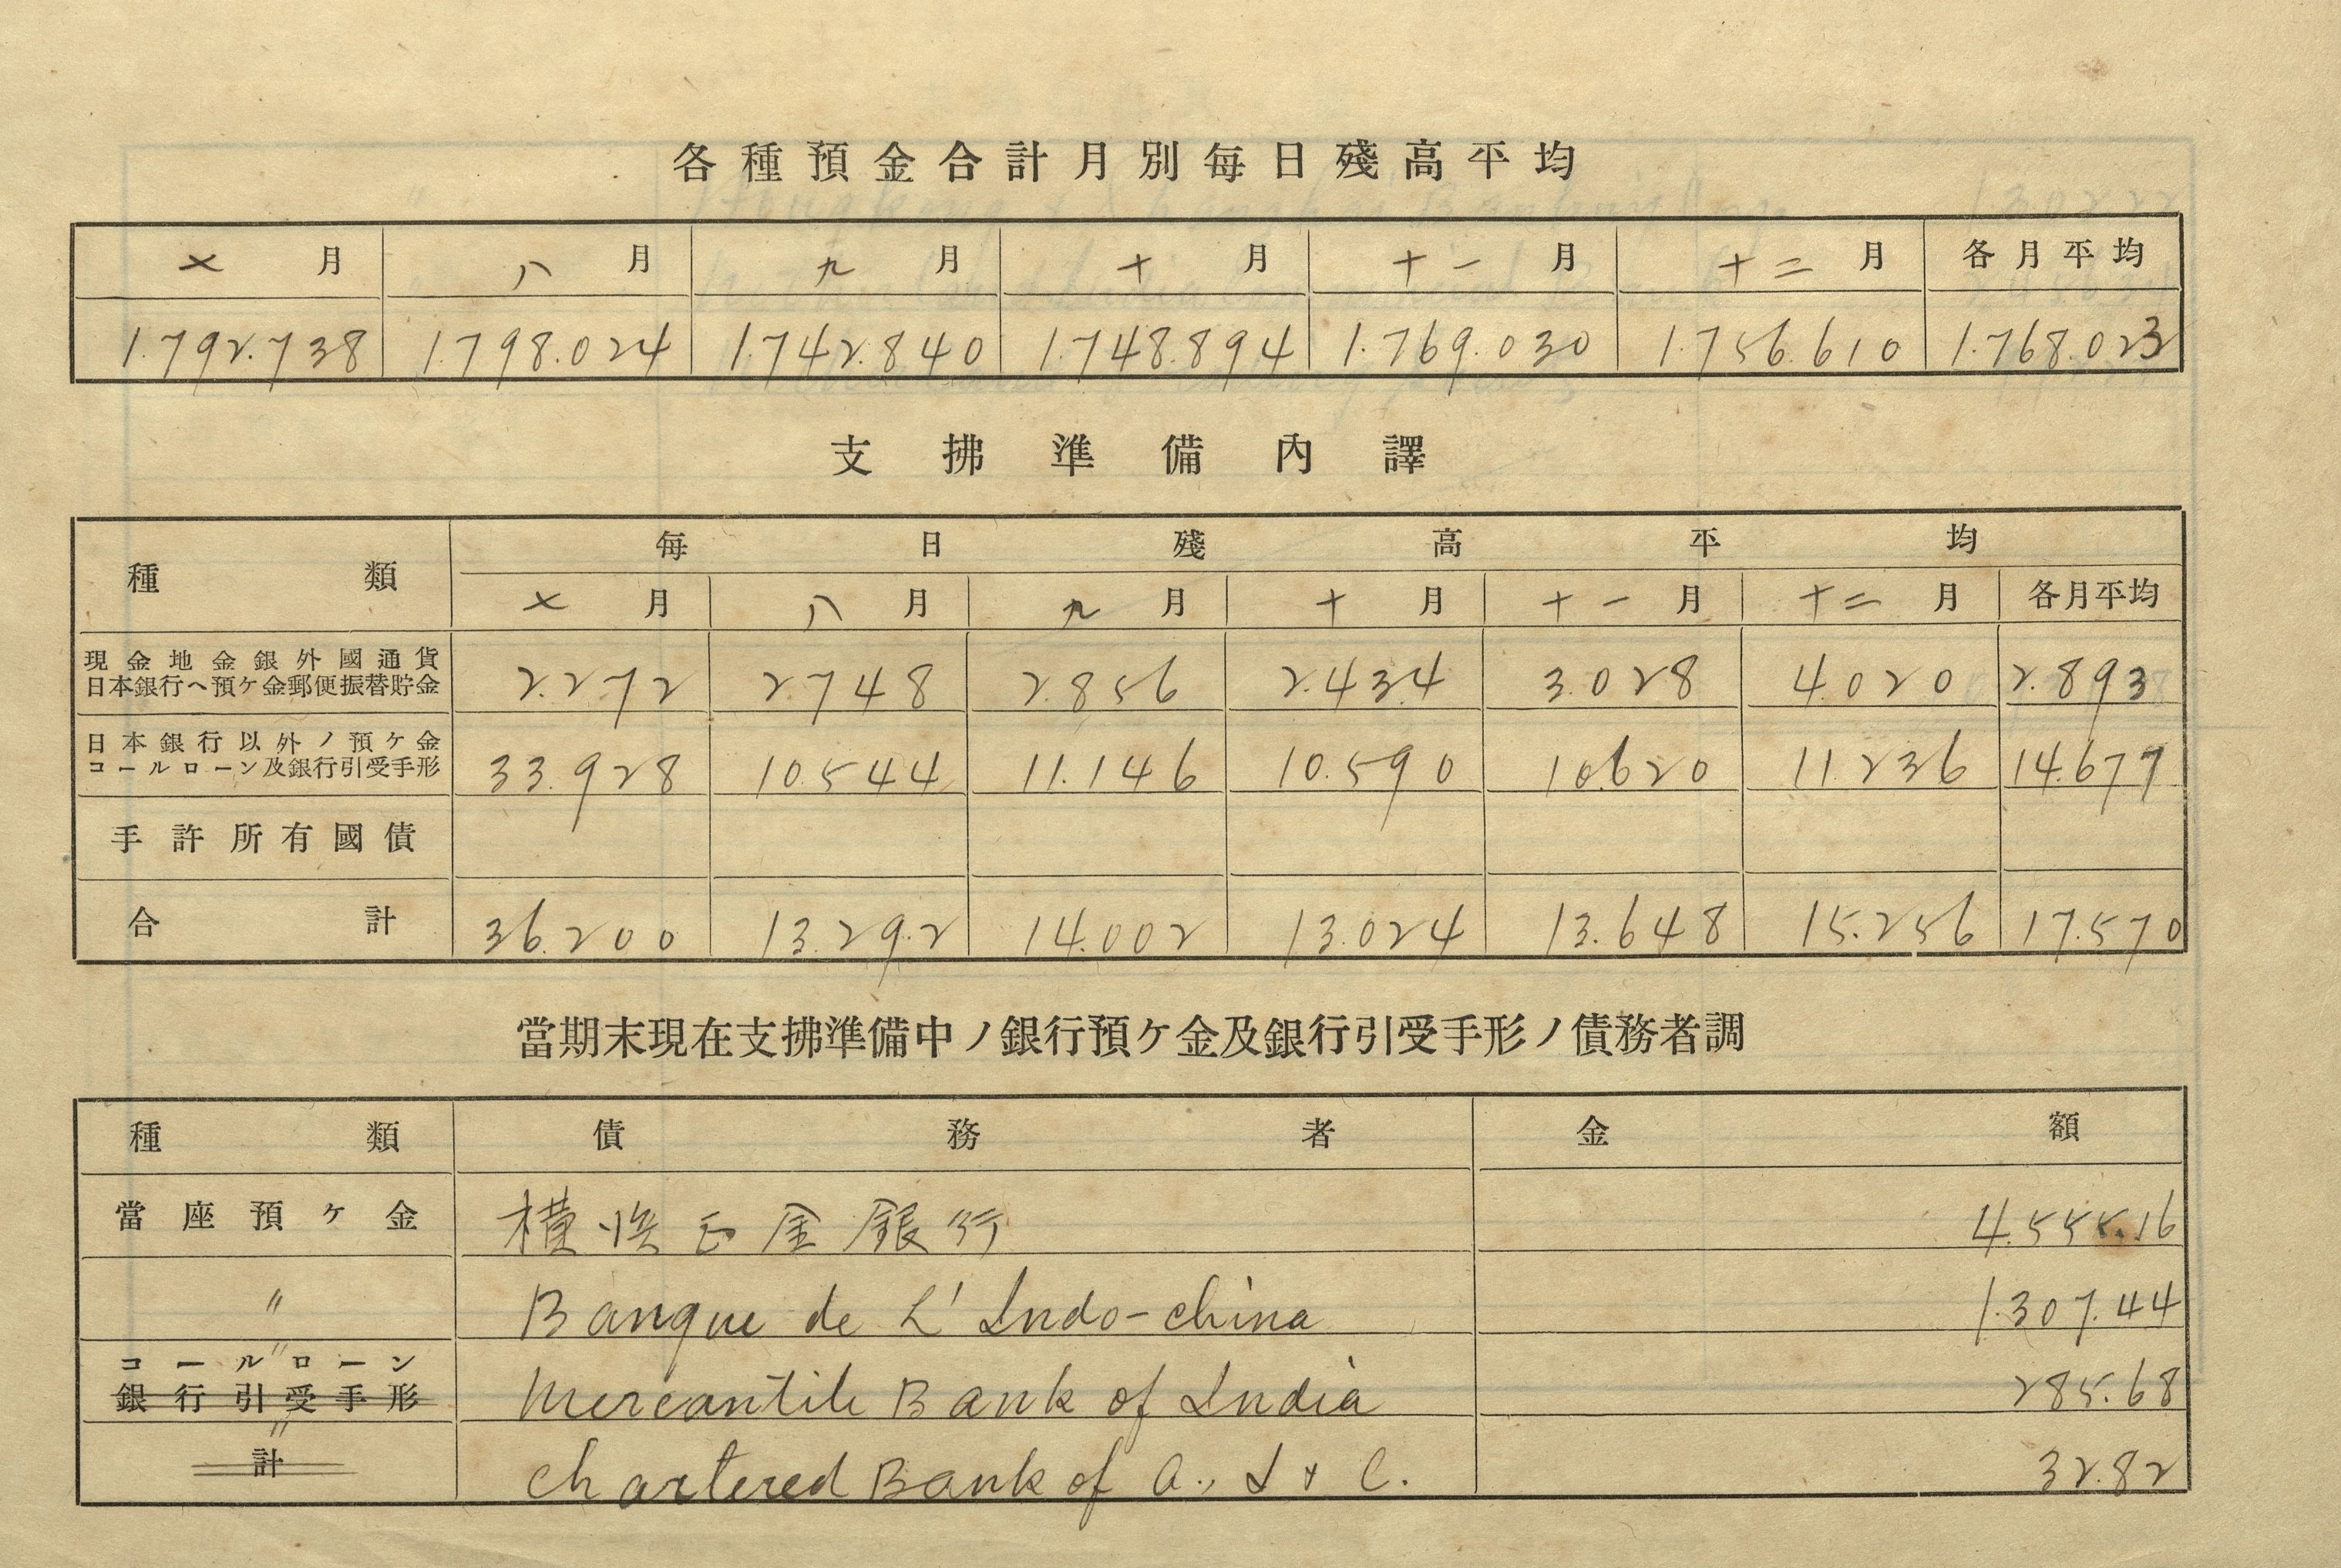 各種預金合計月別每日殘高平均
七月 八月 九月 十月 十一月 十二月 各月平均
1.792.738 1.798.024 1.742.840 1.748.894 1.769.030 1.756.610 1.768.023
支拂準備內譯
種類 每日殘高平均
七月 八月 九月 十月 十一月 十二月 各月平均
現金地金銀外國通貨
日本銀行へ預ケ金郵便振替貯金
2.272 2.748 2.856 2.434 3.028 4.020 2.893
日本銀行以外ノ預ケ金
コールローン及銀行引受手形
33.928 10.544 11.146 10.590 10.620 11.236 14.677
手許所有國債
合計 36.200 13.292 14.002 13.024 13.648 15.256 17.570
當期末現在支拂準備中ノ銀行預ケ金及銀行引受手形ノ債務者調
種類 債務者 金額
當座預ケ金 横浜正金銀行 4.555.16
〃 Banque de L' Indo-china 1.307.44
コールローン 〃
銀行引受手形 Mercantile Bank of India 285.68
〃
計 Chartered Bank of A., I & C. 32.82